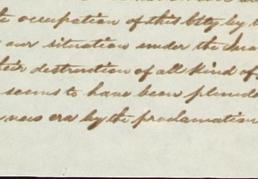 the occupation of this bldg by t
our situation under the
their destruction of all kind of
seems to have been plunde
new era by the proclamation